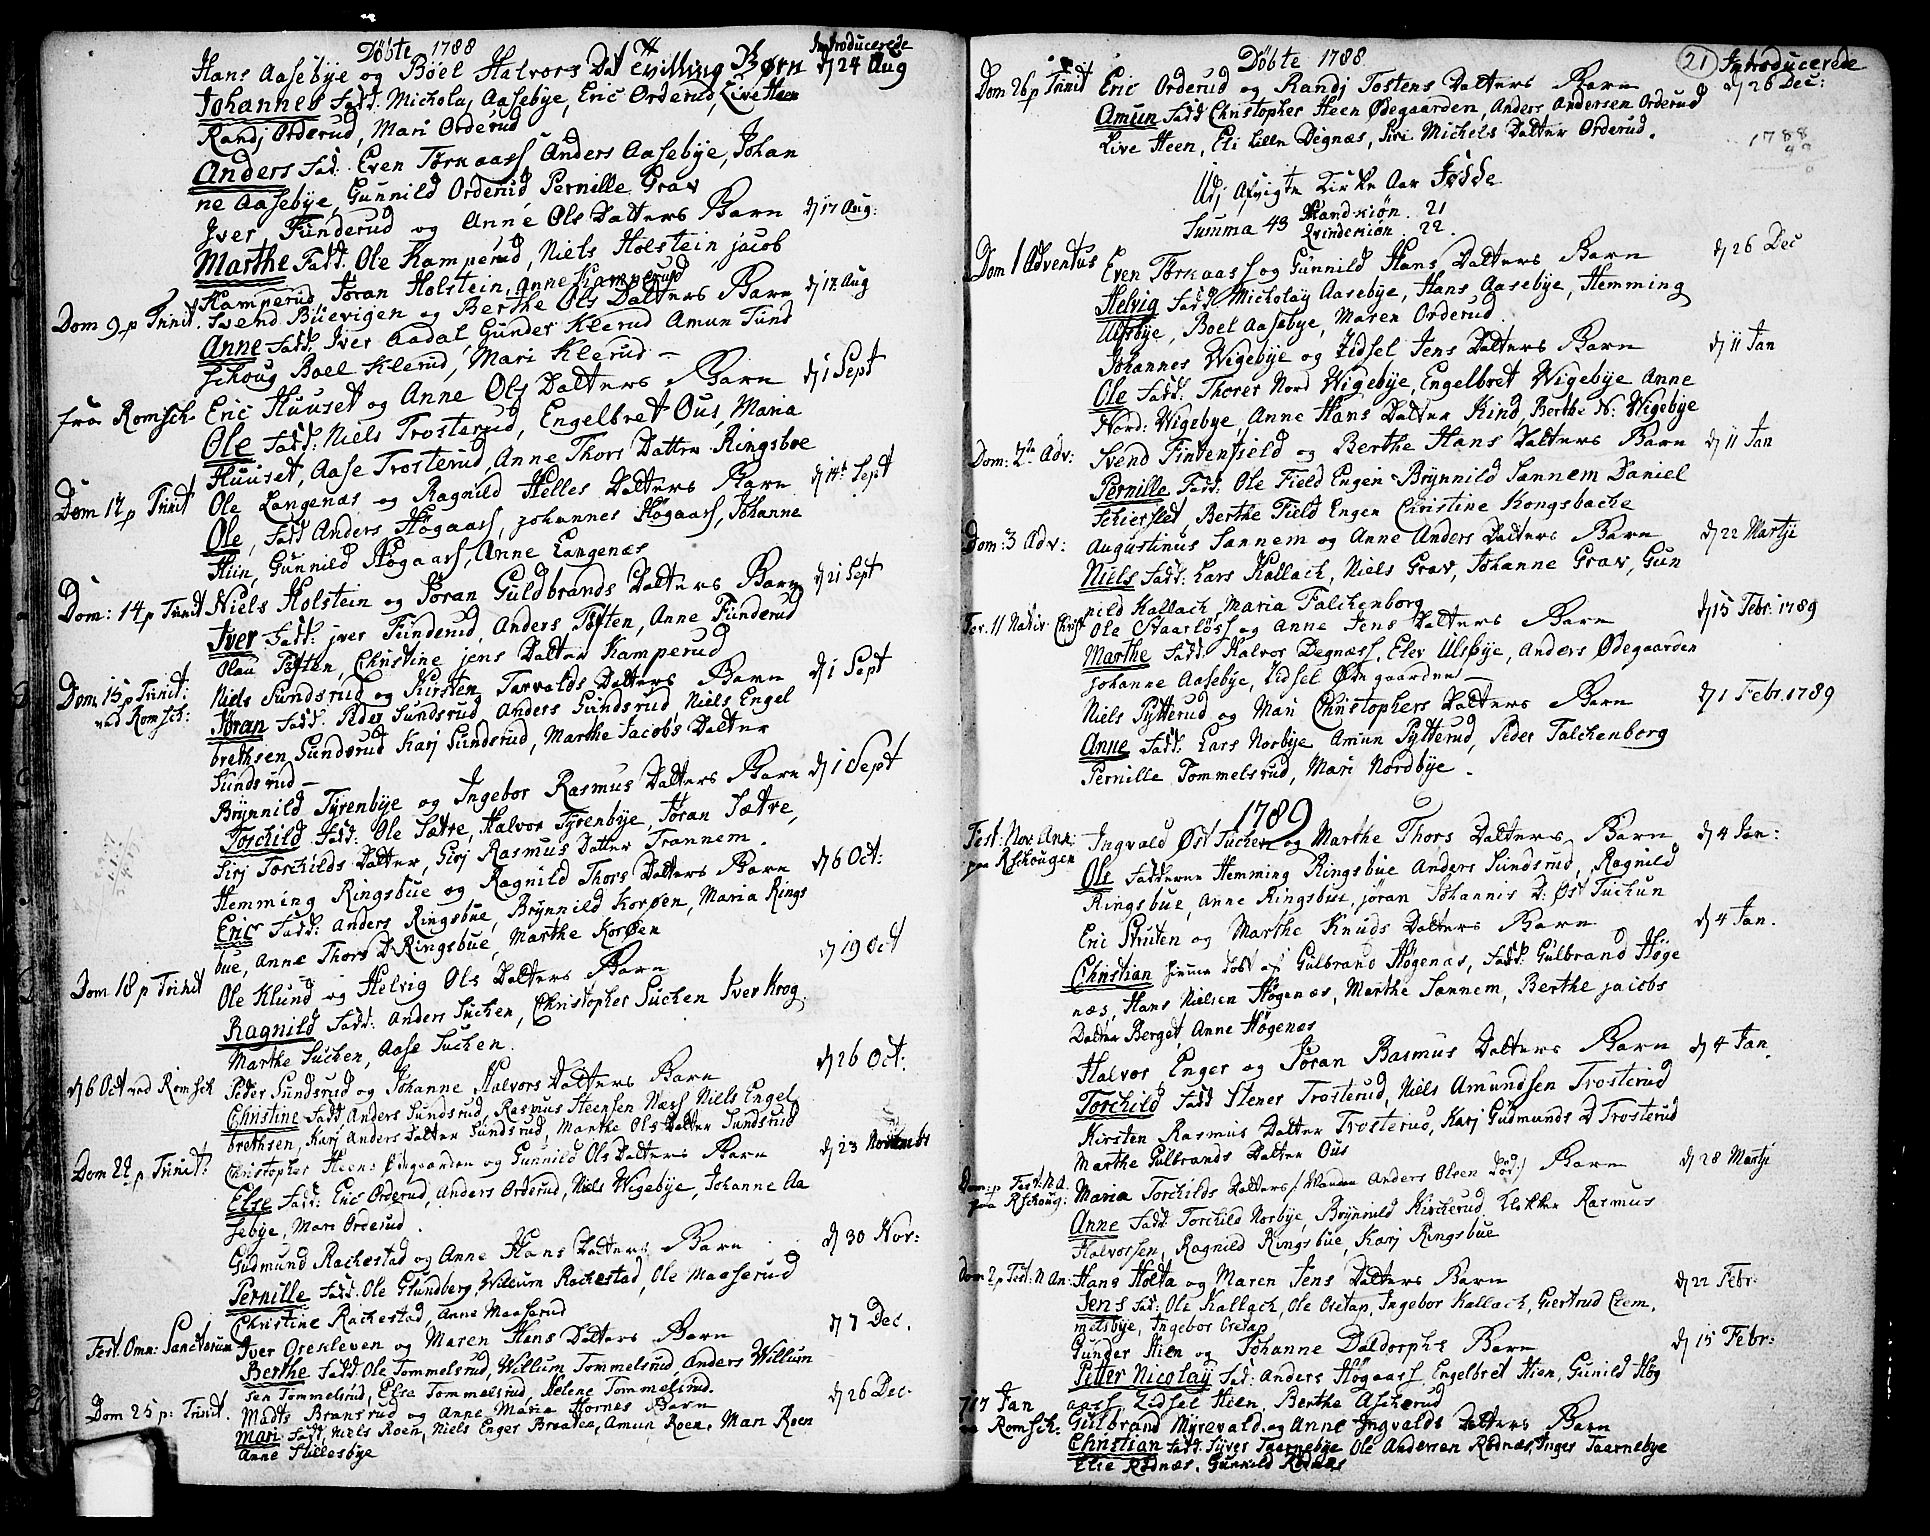 Döbte 1788 Introducerede
Hans Aasebÿe og Böel Halvors Dat Tvilling Børn dj 24 Aug
Johannes Fadd: Micholaÿ Aasebÿe, Eric Orderud, Live Heen
Randj Orderud, Mari Orderud
Anders Fad: Even Tørkaass, Anders Aasebÿe, Johan
ne Aasebÿe, Gunnild Orderud Pernille Grav
Iver Funderud og Anne Ols Datters Barn dj 17 Aug:
Marthe Fadd: Ole Kamperud, Niels Holstein, jacob
Kamperud, Jøran Holstein, Anne Kamperud
Dom 9 p Trinit. Svend Buevigen og Berthe Ols Datters Barn dj 17 Aug
Anne Fadd: Iver Aadal, Gunder Klerud Amun Tund
schoug Boel Klerud, Mari Klerud –
fra Romsch Eric Huuset og Anne Ols Datters Barn dj 1 Sept
Ole Fadd: Niels Trosterud, Engelbret Ous, Maria
Huuset, Aase Trosterud, Anne Thors Datter Ringsboe
Dom 12 p Trinit Ole Langenæs og Ragnild Helles Datters Barn dj 14 Sept
Ole, Fadd Anders Høgaass, johannes Høgaass, Johanne
Hiin, Gunnild Høgaass, Anne Langenæs
Dom: 14 p Trinit Niels Holstein og Jøran Guldbrands Datters Barn dj 21 Sept
Iver Fadd: jver Funderud, Anders Toften, Anne Funderud
Olau Toften, Christine jens Datter Kamperud
Dom 15 p Trinit: Niels Sundsrud og Kirsten Tarvalds Datters Barn dj 1 Sept
ved Romsch: Jøran Fadd: Peder Sundsrud Anders Sundsrud Niels Engel
brethsen Sundsrud Karj Sundsrud, Marthe Jacobs Datter
Sundsrud –
Brÿnnild Tÿrenbÿe og Ingebor Rasmus Datters Barn dj 1 Sept
Torchild Fad: Ole Sætre, Halvor Tÿrenbÿe, Jøran Sætre,
Sirj Torchilds Datter, Sirj Rasmus Datter Trannem.
Hemming Ringsbue og Ragnild Thors Datters Barn dj 6 Oct:
Eric Fadd: Anders Ringsbue, Brÿnnild Korøen, Maria Rings
bue, Anne Thors D Ringsbue, Marthe Korøen
Dom 18 p Trinit Ole Klund og Helvig Ols Datters Barn dj 19 Oct
Ragnild Fadd: Anders Tuchen, Christopher Tuchen Iver Krog
Marthe Tuchen, Aase Tuchen.
dj 6 Oct ved Romsch Peder Sundsrud og Johanne Halvors Datters Barn dj 26 Oct:
Christine Fadd, Anders Sundsrud, Rasmus Steensen Næss Niels Engel
brethsen, Karj Anders Datter Sundsrud, Marthe Ols Datter Sundsrud
Dom 22 p Trinit: Christopher Heen: Ødegaarden og Gunnild Ols Datters Barn dj 23 Novembr
Else Fadd: Eric Orderud, Anders Orderud, Niels Wigebÿe, Johanne Aa
sebÿe, Mari Orderud.
Gudmund Rachestad og Anne Hans Datters Barn dj 30 Nov:
Pernille Fadd: Ole Glundberg, Willum Rachestad, Ole Maaserud
Christine Rachestad, Anne Maaserud
Fest. Omn: Sanctorum Iver Oresleven og Maren Hans Datters Barn dj 7 Dec.
Berthe Fadd: Ole Tommelsrud, Willum Tommelsrud Anders Willum
sen Tommelsrud, Else Tommelsrud, Helene Tommelsrud.
Dom 25 p: Trinit. Madts Bransrud og Anne Maria Hornes Barn dj 26 Dec.
Mari Fadd, Niels Roen, Niels Enger Braatea, Amun Roen, Mari Roen
Anne Stillesbÿe
Döbte 1788 21 Introducerede
Dom 26 p Trinit Eric Orderud og Randj Tostens Datters Barn dj 26 Dec:
Amun Fadd Christopher Heen Ødegaarden, Anders Andersen Orderud
Live Heen, Eli Lille Degnæs, Siri Michels Datter Orderud.
1788
Udj Afvigte Kirke Aar Fødde
Mandkiøn. 21
Summa 43 Qvindekiøn. 22.
Dom 1 Adventus Even Tørkaass og Gunnild Hans Datters Barn dj 26 Dec
Helvig Fadd: Micholaÿ Aasebÿe, Hans Aasebÿe, Hemming
Ulsbÿe, Boel Aasebÿe, Maren Orderud.
Johannes Wigebÿe og Zidsel Jens Datters Barn dj 11 Jan
Ole Fadd: Thorer Nord Wigebÿe, Engelbret Wigebÿe Anne
Nord: Wigebÿe, Anne Hans Datter Kind, Berthe N: Wigebÿe
Dom: 2den Adv: Svend Fintenfield og Berthe Hans Datters Barn dj 11 Jan
Pernille Fadd: Ole Field Engen Brÿnnild Sannem Daniel
Schiersled, Berthe Field Engen Christine Kongsbache
Dom: 3 Adv: Augustinus Sannem og Anne Anders Datters Barn dj 22 Martji
Niels Fadd: Lars Kallach, Niels Grav, Johanne Grav, Gun
nild Kallach, Maria Falchenborg
Fer. 11 Nativ: Christ Ole Staarløss og Anne Jens Datters Barn dj 15 Febr: 1789
Marthe Fadd: Halvor Degnæss, Elev Ulsbÿe, Anders Ødegaarden
Johanne Aasebÿe, Zidsel Ødegaarden –
Niels Pÿtterud og Mari Christophers Datters Barn dj 1 Febr. 1789
Anne Fadd: Lars Norbÿe, Amun Pÿtterud, Peder Falchenborg
Pernille Tommelsrud, Mari Nordbÿe.
1789
Fest: Nov: Ann: Ingvald Øst Tuchen og Marthe Thors Datters Barn dj 4 Jan:
paa Rschougen Ole Fadderne Hemming Ringsbue Anders Sundsrud, Ragnild
Ringsbue, Anne Ringsbue, jøran Johannis D: Øst Tuchun
Eric Struten og Marthe Knuds Datters Barn dj 4 Jan.
Christian hiemme døbt af Gulbrand Høgenæs, Fadd: Gulbrand Høge
næs, Hans Nielsen Høgenæs, Marthe Sannem, Berthe jacobs
Datter Berget, Anne Høgenæs
Halvor Enger og Jøran Rasmus Datters Barn dj 4 Jan.
Torchild Fadd Stener Trosterud, Niels Amundsen Trosterud
Kirsten Rasmus Datter Trosterud, Karj Gudmunds D Trosterud
Marthe Gulbrands Datter Ous
Dom: p Fest: N A. Maria Torchilds Datters /: Manden Anders Olsen død :/ Barn dj 28 Martji
paa Rschoug: Anne Fadd Torchild Norbÿe, Brÿnnild Kircherud Klokker Rasmus
Halvorssen, Ragnild Ringsbue, Karj Ringsbue
Dom 2 p Fest: N An: Hans Holta og Maren Jens Datters Barn dj 22 Febr:
Jens Fad: Ole Kallach, Ole Oretap, Ingebor Kallach, Giertrud Clem
metsbÿe, Ingebor Oretap
Gunder Hien og Johanne Daldorphs Barn dj 15 Febr:
Petter Nicolaÿ Fad: Anders Høgaass, Engelbret Hien, Gunild Høg
aass, Zidsel Heen, Berthe Ascherud
17 Jan Gulbrand Mÿrevald og Anne Ingvalds Datters Barn
Romsch. Christian Fadd: Siver Taarnebÿe Ole Andersen Rødnæs, Inger Taarnebÿe
Else Rødnæs, Gunnild Rødnæs